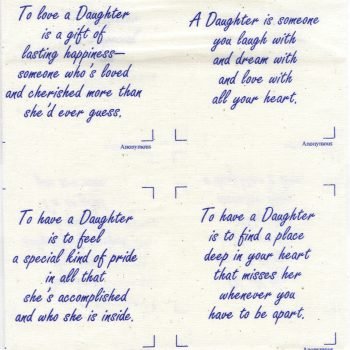 To love a Daughter
is a gift of
lasting happiness—
someone who's loved
and cherished more than
she'd ever guess.
Anonymous
A Daughter is someone
you laugh with
and dream with
and love with
all your heart.
Anonymous
To have a Daughter
is to feel
a special kind of pride
in all that
she's accomplished
and who she is inside.
To have a Daughter
is to find a place
deep in your heart
that misses her
whenever you
have to be apart.
Anonymous